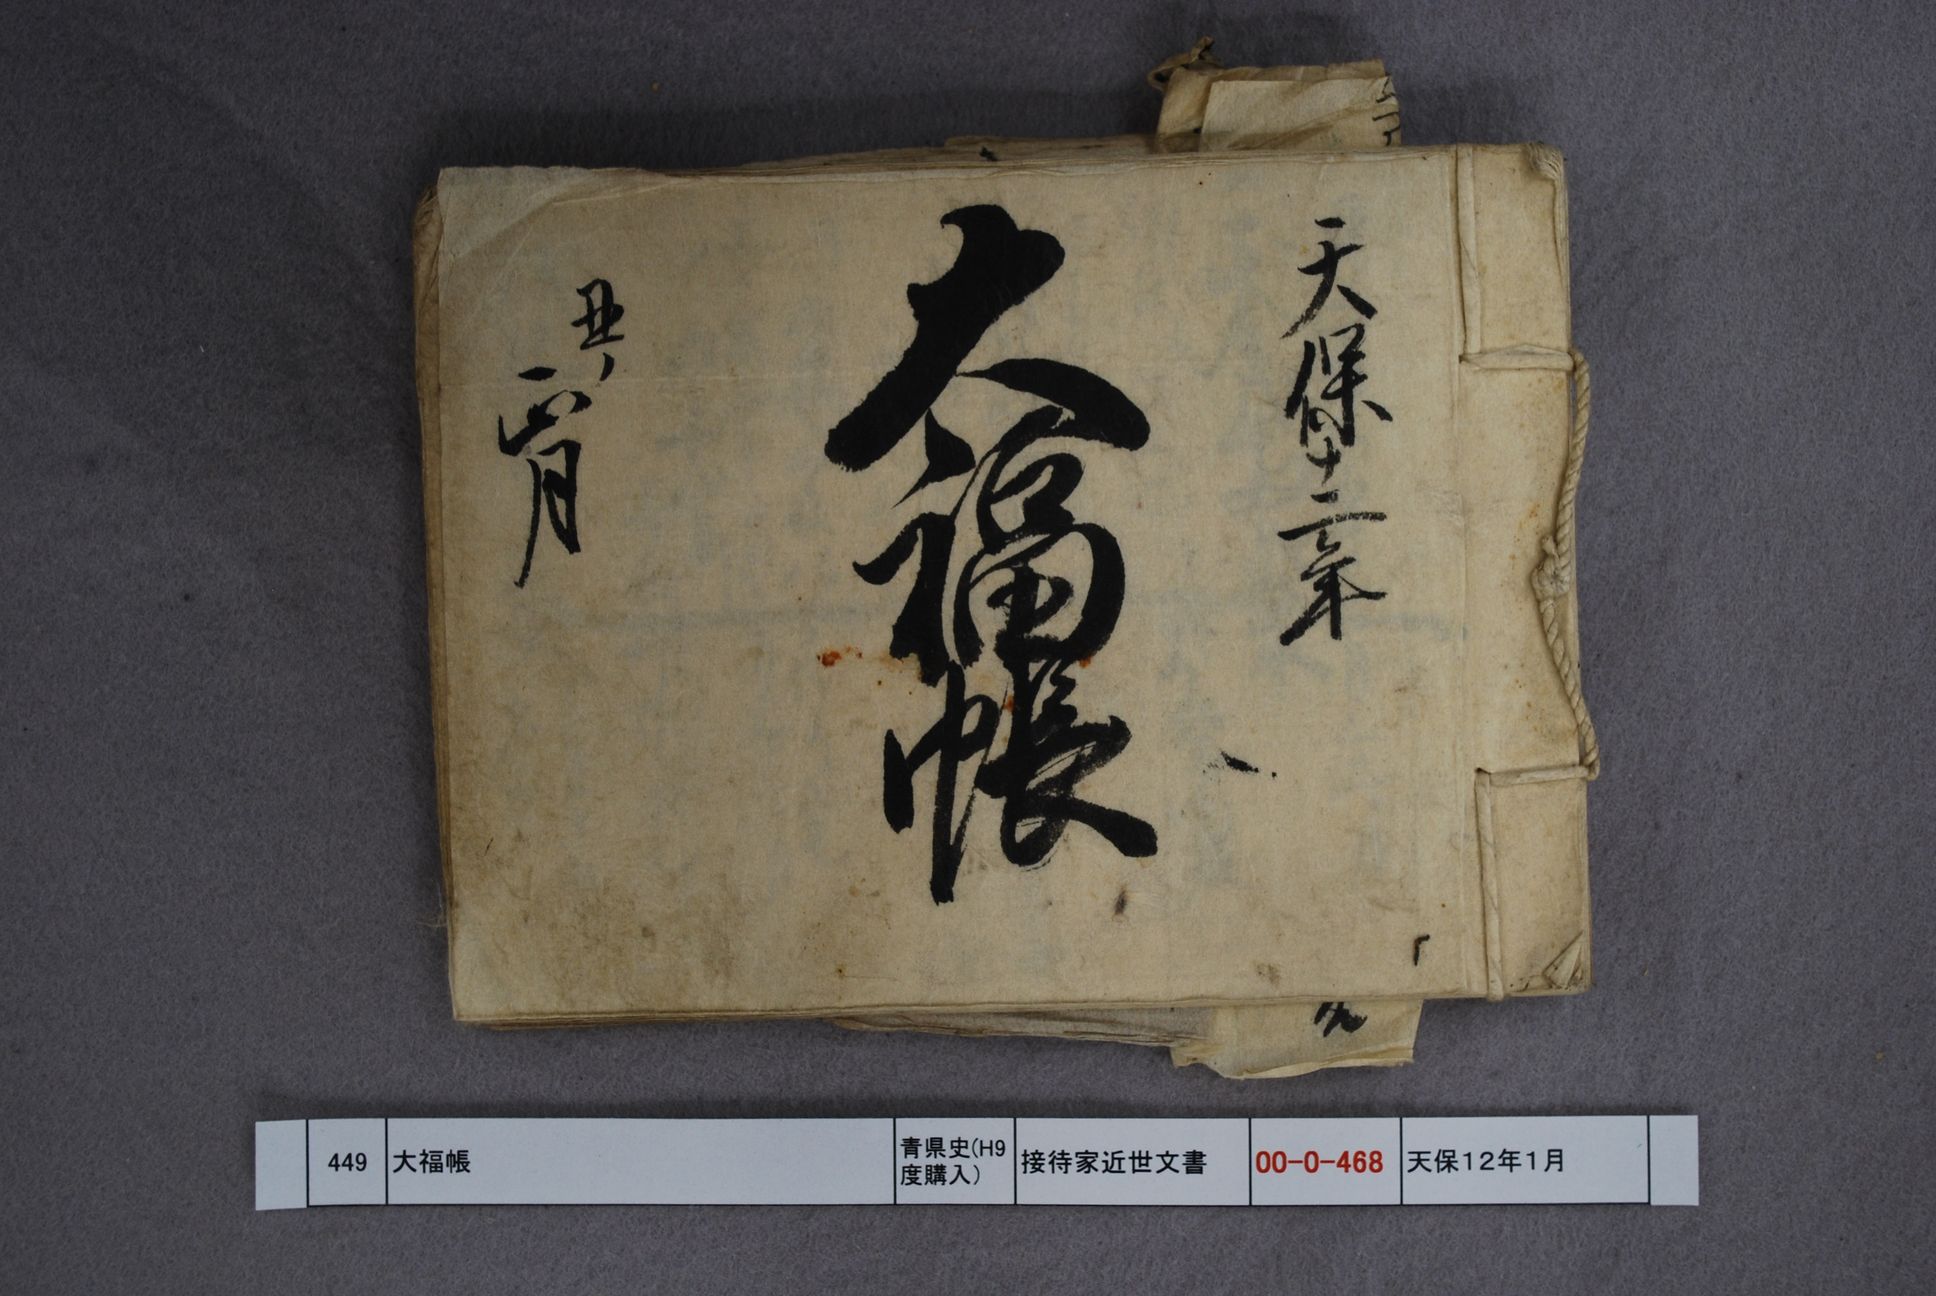 天保十二年
大福帳
丑ノ
正月
449
大福帳
青県史(H9
度購入)
接待家近世文書
00-0-468
天保12年1月